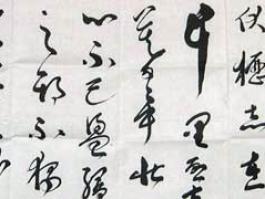 伏櫪志在
千里烈士
暮年壯
心不已盈縮
之期不獨